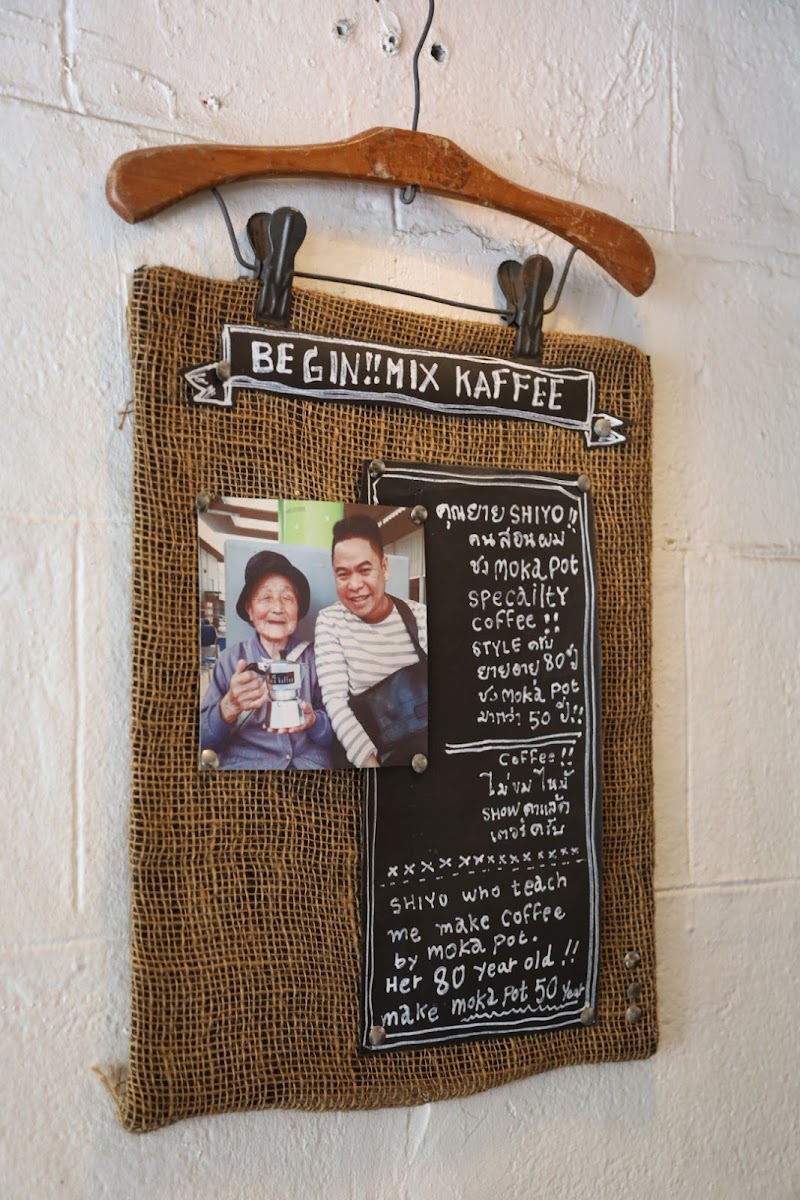 BEGIN!!MIX KAFFEE
คุณยาย SHIYO!!
คนสอนผม
ชง MOKA POT
SPECAILTY
COFFEE !!
STYLE ครับ
ยายอายุ 80 ปี
ชง MOKA POT
มากว่า 50 ปี!!
COFFEE!!
ไม่ขม ไหม้
SHOW คาแล็ค
เตอร์ครับ
xxxxxxxxxxxxxxx
SHIYO who teach
me make coffee
by MOKA POT.
Her 80 year old !!
make moka Pot 50 Year